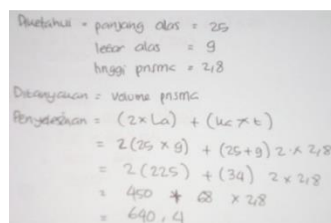 Diketahui = panjang alas = 25
lebar alas = 9
tinggi prisma = 2,8
Ditanyakan = Volume prisma
Penyelesaian = (2×La) + (Ka×t)
= 2(25×9) + (25+9) 2 × 2,8
= 2(225) + (34) 2 × 2,8
= 450 + 68 × 2,8
= 640,4